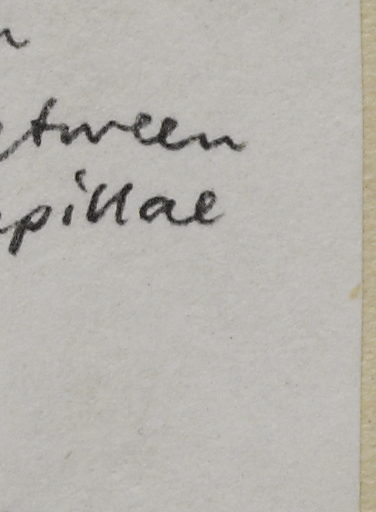 n
etween
pillae